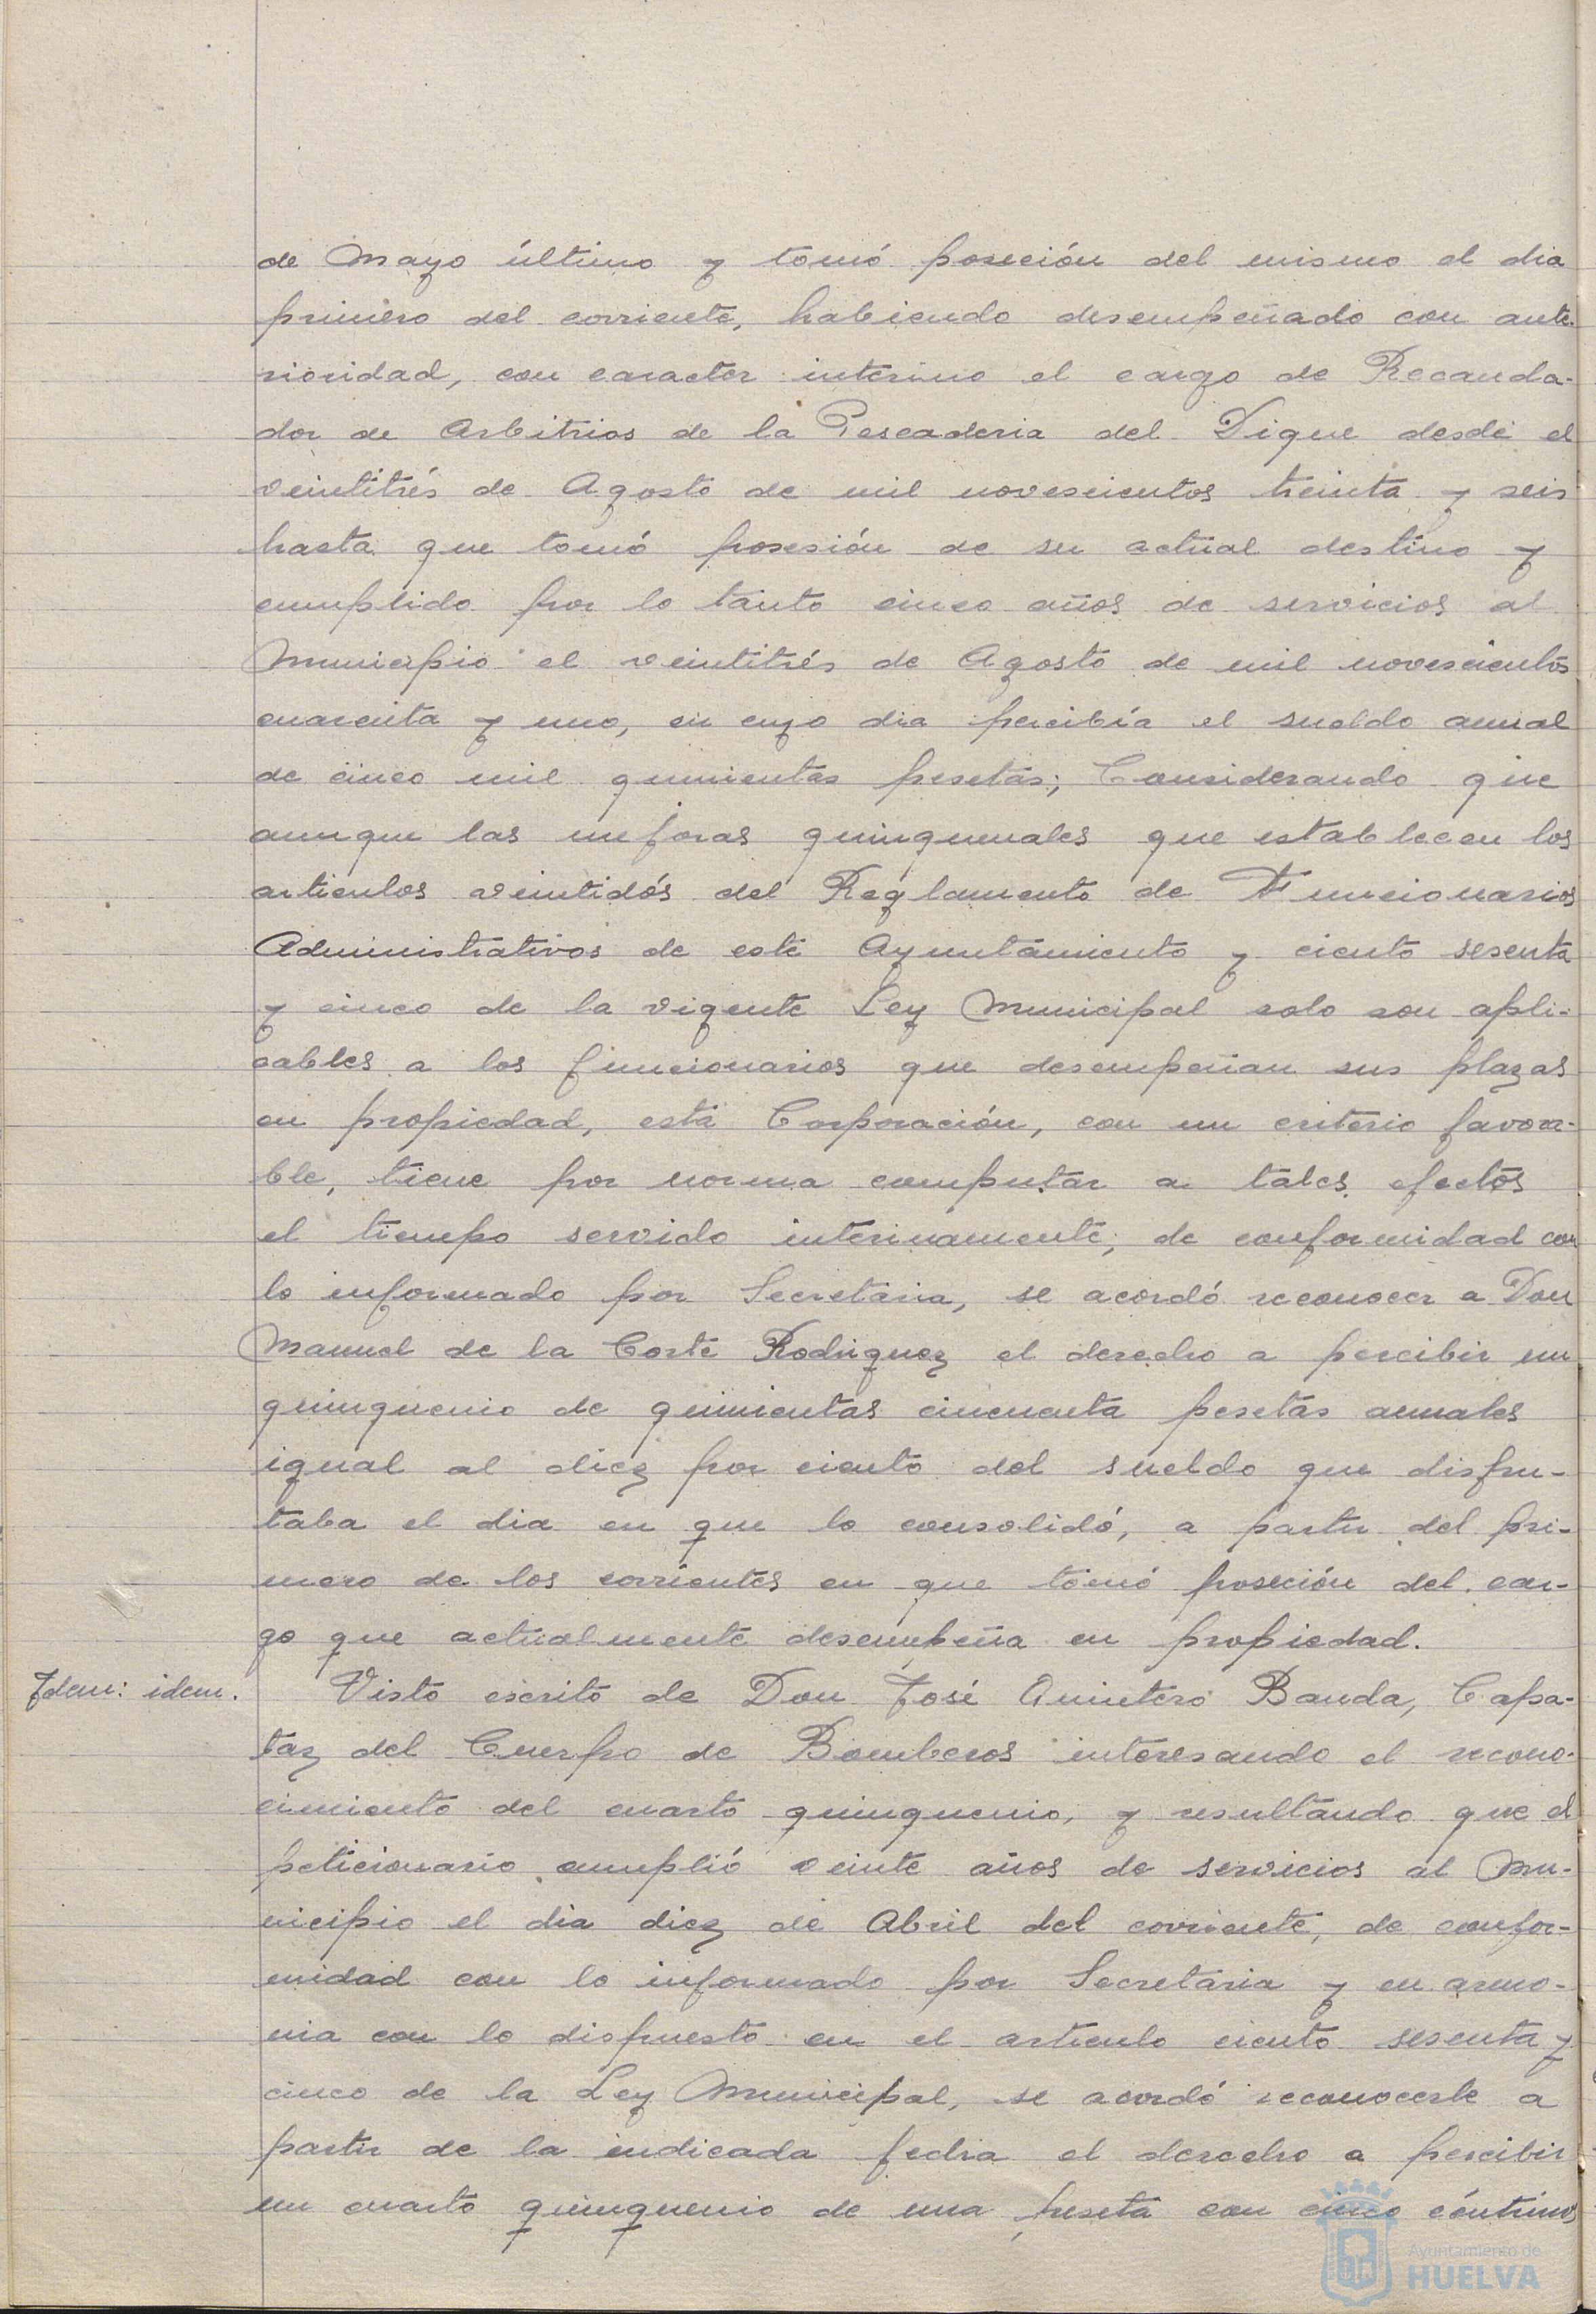 de Mayo último y tomó poseción del mismo el dia
primero del corriente, habiendo desempeñado con ante-
rioridad, con caracter interino el cargo de Recauda-
dor de Arbitrios de la Pescaderia del Dique desde el
veintitrés de Agosto de mil novescientos treinta y seis
hasta que tomó posesión de su actual destino y
cumplido por lo tanto cinco años de servicios al
Municipio el veintitrés de Agosto de mil novescientos
cuarenta y uno, en cuyo dia percibía el sueldo anual
de cinco mil quinientas pesetas; Considerando que
aunque las mejoras quinquenales que establecen los
articulos veintidós del Reglamento de Funcionarios
Administrativos de este Ayuntamiento y ciento sesenta
y cinco de la vigente Ley Municipal solo son apli-
cables a los funcionarios que desempeñan sus plazas
en propiedad, esta Corporación, con un criterio favora-
ble, tiene por norma computar a tales efectos
el tiempo servido interinamente; de conformidad con
lo informado por Secretaria, se acordó reconocer a Don
Manuel de la Corte Rodriguez el derecho a percibir un
quinquenio de quinientas cincuenta pesetas anuales
igual al diez por ciento del sueldo que disfru-
taba el dia en que lo consolidó, a partir del pri-
mero de los corrientes en que tomó poseción del car-
go que actualmente desempeña en propiedad.
Idem: idem. Visto escrito de Don José Quintero Banda, Capa-
taz del Cuerpo de Bomberos interesando el recono-
cimiento del cuarto quinquenio, y resultando que el
peticionario cumplió veinte años de servicios al Mu-
nicipio el dia diez de Abril del corriente, de confor-
midad con lo informado por Secretaria y en armo-
nia con lo dispuesto en el articulo ciento sesenta y
cinco de la Ley Municipal, se acordó reconocerle a
partir de la indicada fecha el derecho a percibir
un cuarto quinquenio de una peseta con cinco céntimos
Ayuntamiento de
HUELVA